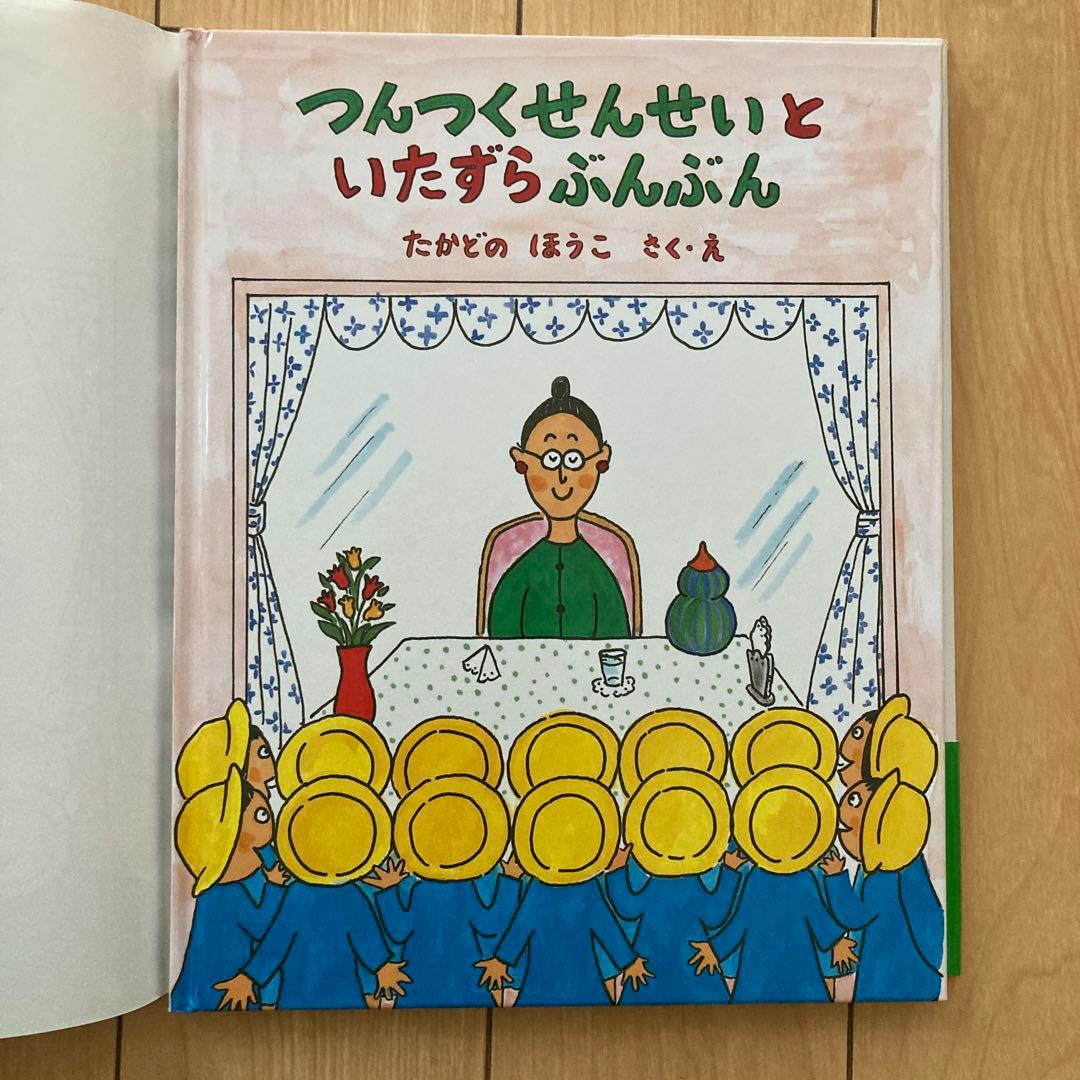 つんつくせんせいと
いたずらぶんぶん
たかどの ほうこ さく・え